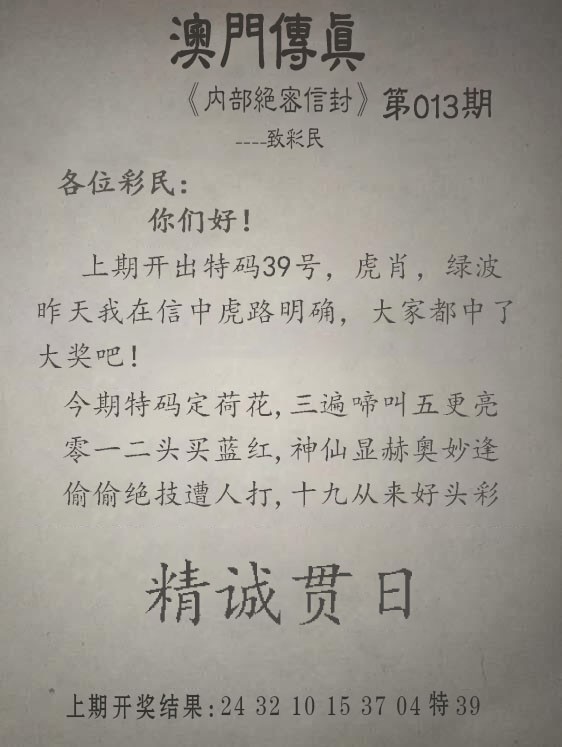 澳門傳眞
《内部絕密信封》第013期
----致彩民
各位彩民：
你们好！
上期开出特码39号，虎肖，绿波
昨天我在信中虎路明确，大家都中了
大奖吧！
今期特码定荷花,三遍啼叫五更亮
零一二头买蓝红,神仙显赫奥妙逢
偷偷绝技遭人打,十九从来好头彩
精诚贯日
上期开奖结果:24 32 10 15 37 04特39